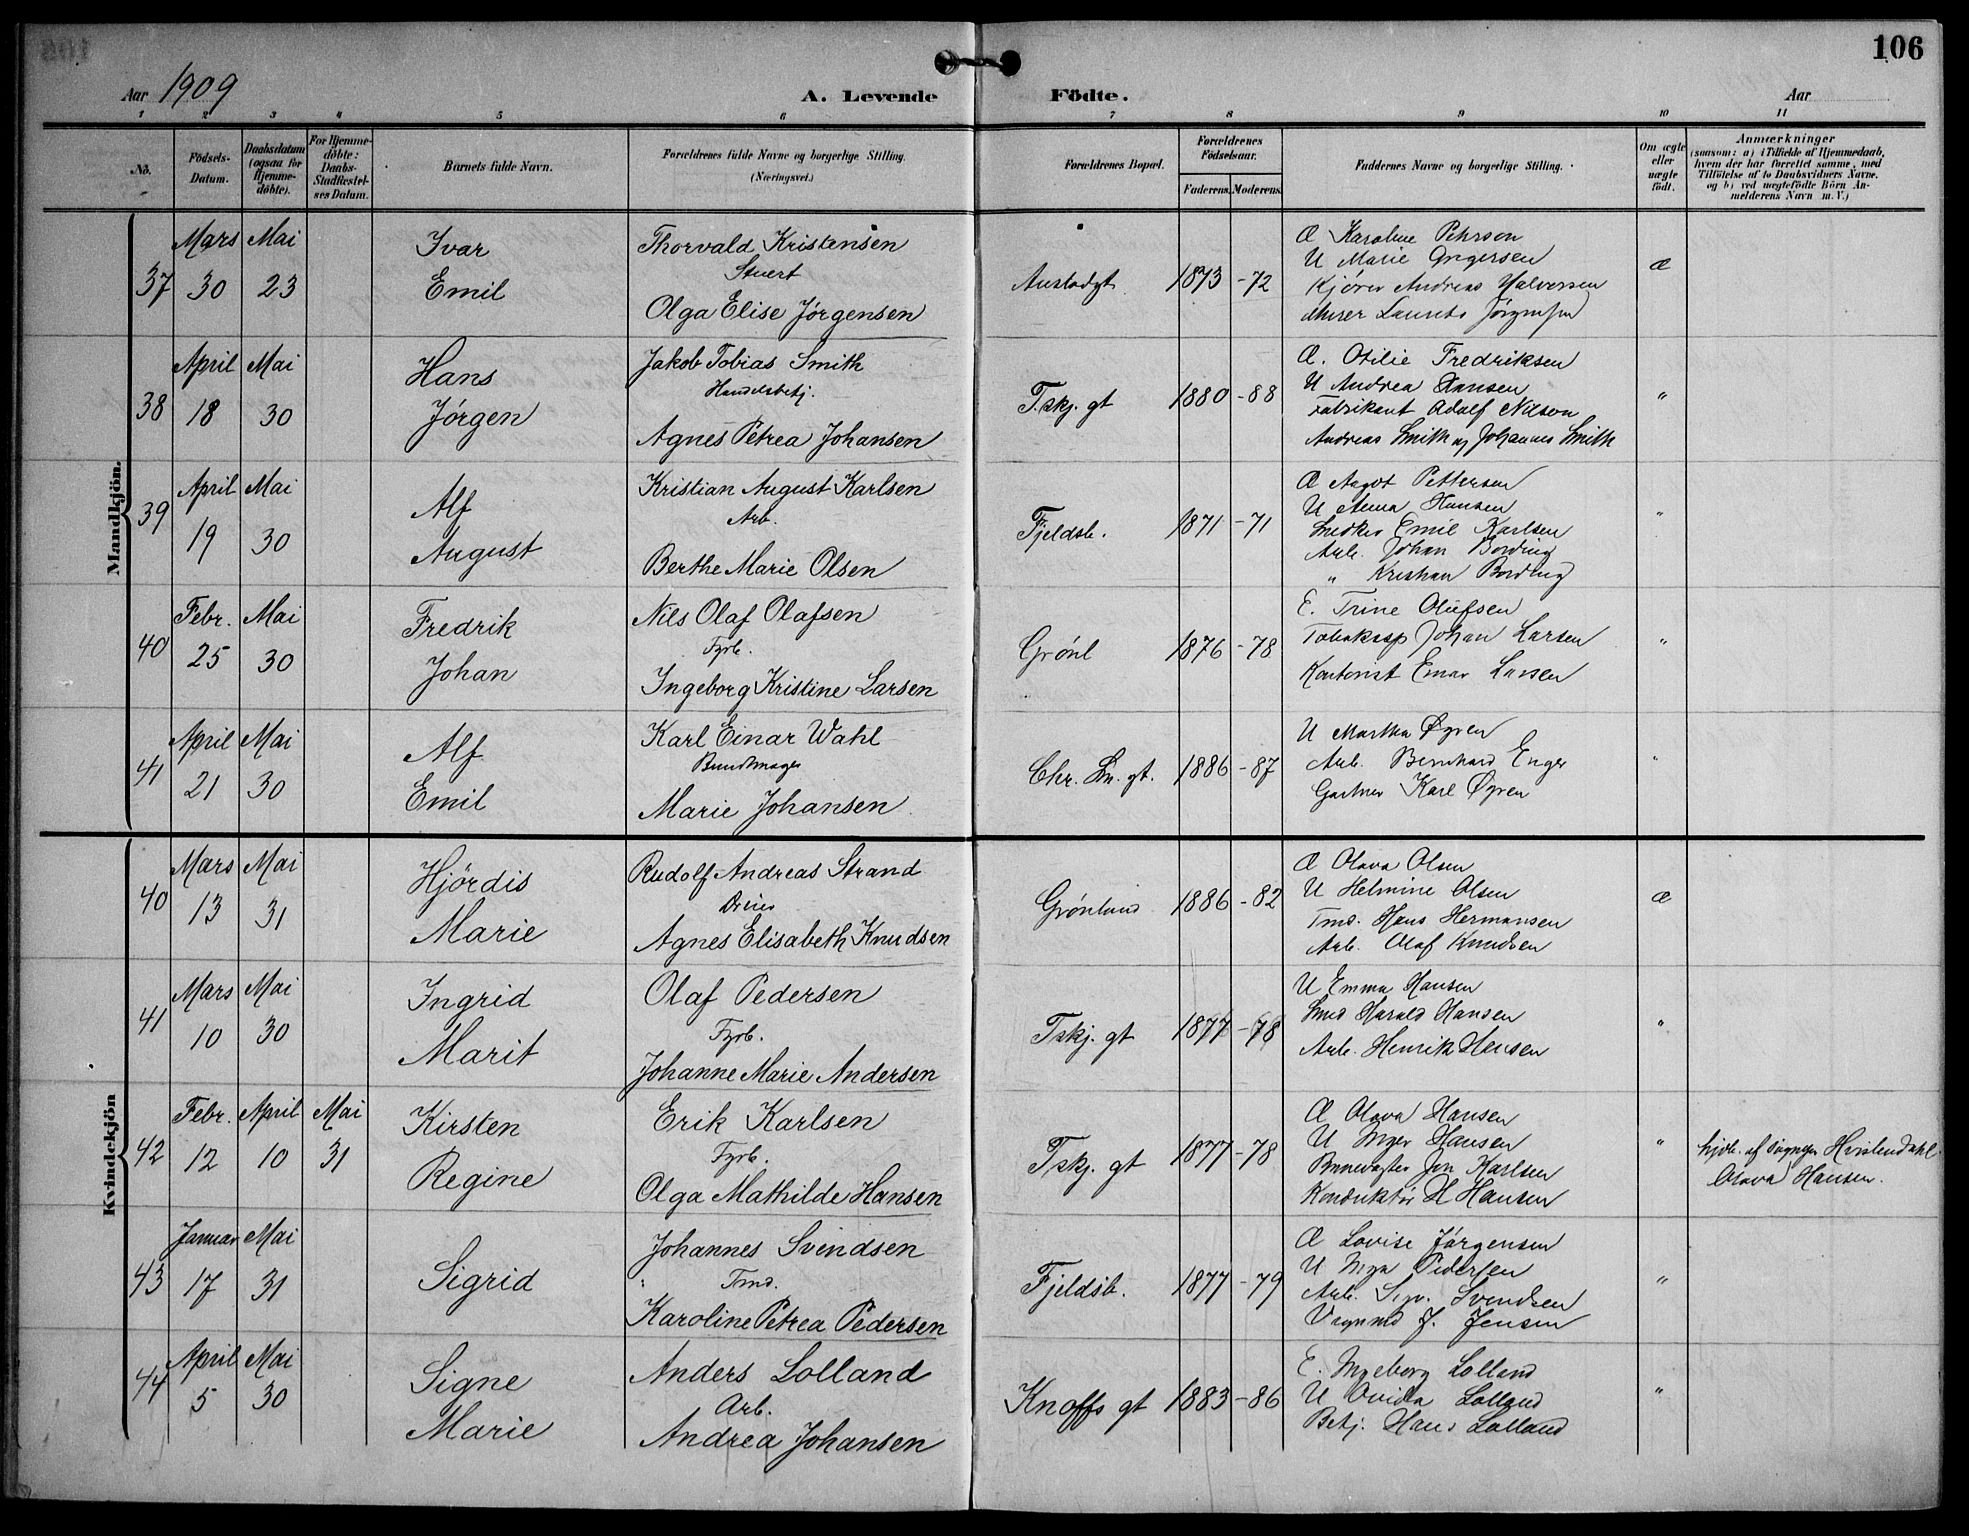 106
Aar 1909
A. Levende Födte.
Aar
1 2 3 4 5 6 7 8 9 10 11
No.
Födsels-Datum.
Daabsdatum (ogsaa for Hjemme-döbte).
For Hjemme-döbte: Daabs-Stadfæstel-ses Datum.
Barnets fulde Navn.
Forældrenes fulde Navne og borgerlige Stilling. (Næringsvei.)
Forældrenes Bopæl.
Forældrenes Födselsaar.
Faderens. Moderens.
Faddernes Navne og borgerlige Stilling.
Om ægte eller uægte födt.
Anmærkninger
(saasom: a) i Tilfælde af Hjemmedaab, hvem der har forrettet samme, med Tilföielse af to Daabsvidners Navne. og b) ved uægtefödte Börn An-melderens Navn m. V.)
Mandkjön.
37 Mars 30 Mai 23
Ivar Emil
Thorvald Kristensen
Stuert
Olga Elise Jørgensen
1873 -72
Æ Karoline Pehrson
U Marie
Kjører Andreas Halvorsen
Murer Laurits Jørgensen
Æ
38 April 18 Mai 30
Hans Jørgen
Jakob Tobias Smith
Handelsbetj.
Agnes Petrea Johansen
T.skj. gt
1880 -88
Æ. Otilie Fredriksen
U Andrea Hansen
Fabrikant Adolf Nilson
Andreas Smith og Johannes Smith
"
39 April 19 Mai 30
Alf August
Kristian August Karlsen
Arb.
Berthe Marie Olsen
Fjeldsb.
1871 -71
Æ Aagot Pettersen
U Anna Hansen
Snedker Emil Karlsen
Arb. Johan Bording
" Kristian Bording
"
40 Febr. 25 Mai 30
Fredrik Johan
Nils Olaf Olafsen
Fyrb.
Ingeborg Kristine Larsen
Grønl
1876 -78
E. Trine Olufsen
Johan Larsen
Kontorist Einar Larsen
"
41 April 21 Mai 30
Alf Emil
Karl Einar Wahl
Bundtmager
Marie Johansen
Chr. Sm. gt.
1886 -87
U Martha Øgren
Arb. Bernhard Enger
Gartner Karl Øgren
"
Kvindekjön
40 Mars 13 Mai 31
Hjørdis Marie
Rudolf Andreas Strand
Dreier
Agnes Elisabeth Knudsen
Grønland
1886 -82
Æ Olava Olsen
U Helmine Olsen
Tmd. Hans Hermansen
Arb. Olaf Knudsen
Æ
41 Mars 10 Mai 30
Ingrid Marit
Olaf Pedersen
Fyrb.
Johanne Marie Andersen
Tskj. gt
1877 -78
U Emma Hansen
Smed Harald Hansen
Arb. Henrik Hansen
"
42 Febr. 12 April 10 Mai 31
Kirsten Regine
Erik Karlsen
Fyrb.
Olga Mathilde Hansen
Tskj. gt
1877 -78
Æ Olava Hansen
U Inger Hansen
Banevogter Jon Karlsen
Konduktør H Hansen
"
hjdb. af Sognepr. Hvislendahl.
Olava Hansen.
43 Januar 17 Mai 31
Sigrid
Johannes Svendsen
Tmd.
Karoline Petrea Pedersen
Fjeldsb.
1877 -79
Æ Lovise Jørgensen
U Inga Pedersen
Arb. Svendsen
J. Jensen
"
44 April 5 Mai 30
Signe Marie
Anders Lolland
Arb.
Andrea Johansen
Knoffs gt
1883 -86
E. Ingeborg Lolland
U Ovida Lolland
Betj. Hans Lolland
"